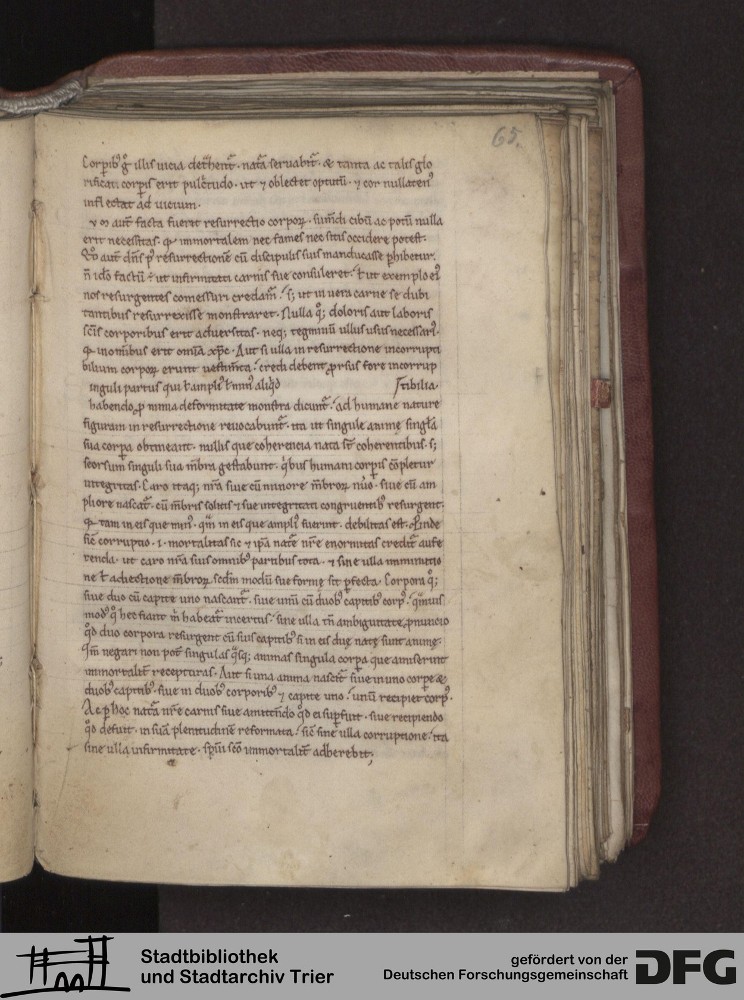 65.
Corporibꝰ gͦ illis uicia det̄hent᷑. nat᷑a seruabit᷑. & tanta ac talis glo
rificati corporis erit pulc̄tudo. ut ⁊ oblectet optutū. ⁊ cor nullatenꝰ
inflectat ad uicium.
aut̄ facta fuerit resurrectio corporꝝ. sum̄di cibū ac potū nulla
erit necessitas. immortalem nec fames nec sitis occidere potest.
Qͦ aut̄ dn̄s pꝰ resurrectionē cū discipulis suis manducasse ꝑhibetur.
n̄ idō factū ÷ ut infirmitati carnis sue consuleret. ł ut exemplo eiꝰ
nos resurgentes comessuri credam᷑. s; ut in uera carne se dubi
tantibus resurrexisse monstraret. Nulla q; doloris aut laboris
sc̄is corporibus erit aduersitas. neq; tegminū ullus usus necessariꝰ.
in om̄ibus erit om̄ia xp̄c. Aut si ulla in resurrectione incorrupti
bilium corporꝝ erunt uestim̄ta. credi debent ꝓrsus fore incorrup
inguli partus qui ł ampliꝰ ł minꝰ aliqͥd tibilia.
habendo ꝓ nimia deformitate monstra dicunt᷑. ad humane nature
figuram in resurrectione reuocabunt᷑. ita ut singule anime singl̄a
sua corpora obtineant. nullis que coherencia nata st̄ coherentibus. s;
seorsum singuli sua m̄bra gestabunt. qͥbus humani corporis cōpletur
integritas. Caro itaq; nr̄a siue cū minore m̄broꝝ nūo. siue cū am
pliore nascat᷑. cū m̄bris solitis ⁊ sue integritati congruentibꝰ resurget.
tam in eis que minꝰ. qm̄ in eis que ampliꝰ fuerint. debilitas est. ꝓinde
sic̄ corruptio .i. mortalitas sic ⁊ ip̄a nat᷑e nr̄e enormitas credit᷑ aufe
renda. ut caro nr̄a suis omnibꝰ partibus tota. ⁊ sine ulla imminutio
ne ł adiectione m̄broꝝ scdm̄ modū sue forme sit ꝑfecta. Corpora q;
siue duo cū capite uno nascant᷑. siue unū cū duobꝰ capitibꝰ corpꝰ. qͣmuis
modꝰ qͦ hec fiant m̄ habeat᷑ incertus. sine ulla tn̄ ambiguitate ꝓnuncio
qd̄ duo corpora resurgent cū suis capitibꝰ si in eis due nate sunt anime.
Qm̄ negari non pot̄ singulas qͣsq; animas singula corpora que amiserunt
immortalit̄ recepturas. Aut si una anima nascit᷑ siue in uno corpore &
duobꝰ capitibꝰ. siue in duobꝰ corporibꝰ ⁊ capite uno. unū recipiet corpꝰ.
Ac ꝑ hoc nat᷑a nr̄e carnis siue amittendo qd̄ ei suꝑfuit. siue recipiendo
qd̄ defuit. in suā plenitudinē reformata. sic̄ sine ulla corruptione. ita
sine ulla infirmitate. sp̄ui sc̄o immortalit̄ adherebit;
Stadtbibliothek
und Stadtarchiv Trier
gefördert von der
Deutschen Forschungsgemeinschaft
DFG